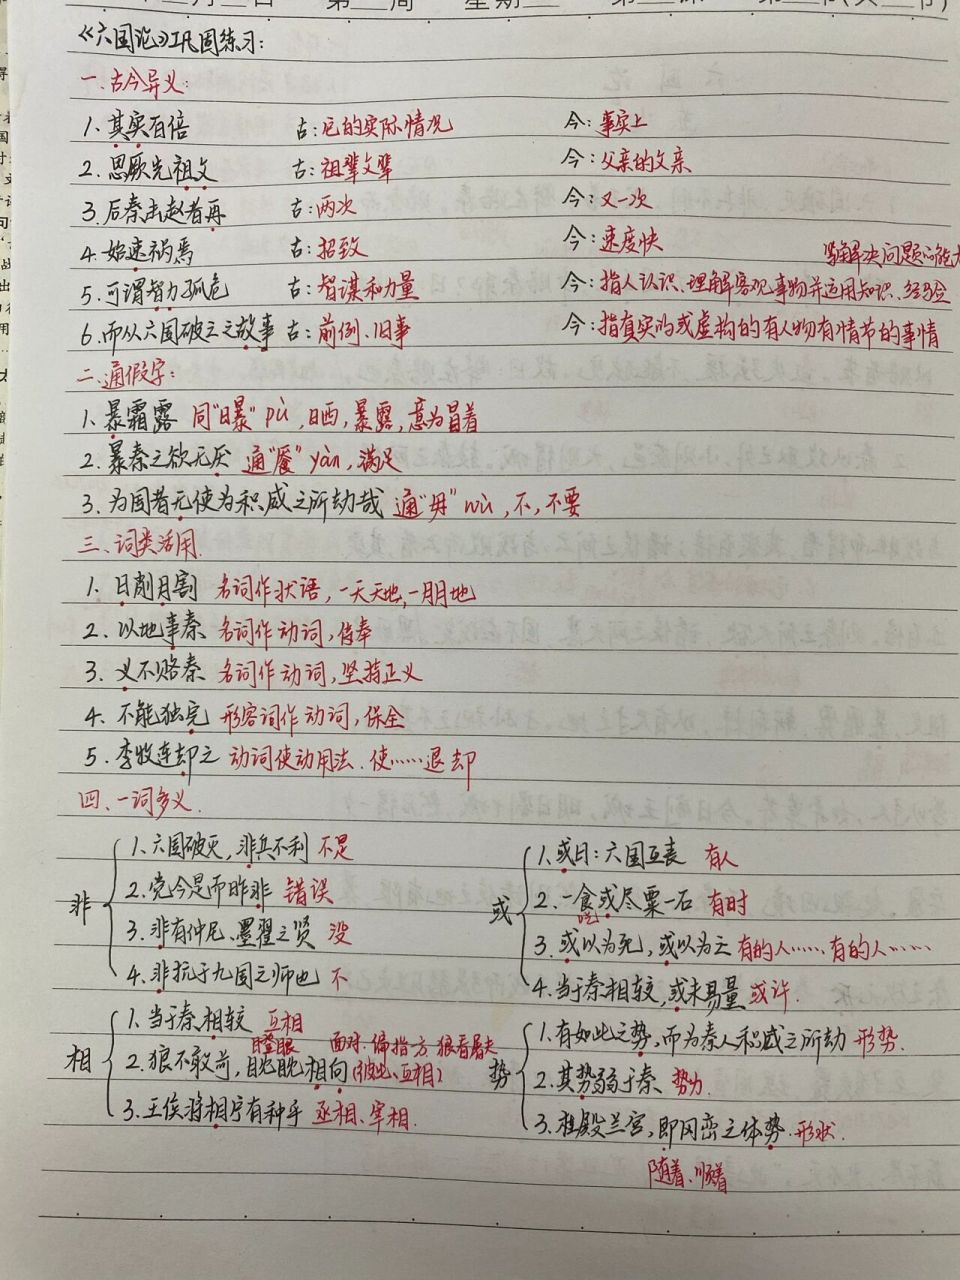 《六国论》巩固练习:
一.古今异义:
1.其实百倍 古:它的实际情况 今:事实上
2.思厥先祖父 古:祖辈父辈 今:父亲的父亲
3.后秦击赵者再 古:两次 今:又一次
4.始速祸焉 古:招致 今:速度快
5.可谓智力孤危 古:智谋和力量 今:指人认识、理解客观事物并运用知识、经验 等解决问题的能力
6.而从六国破亡之故事 古:前例、旧事 今:指真实的或虚构的有人物有情节的事情
二.通假字:
1.暴霜露 同"曝"pù,日晒,暴露,意为冒着
2.暴秦之欲无厌 通"餍"yàn,满足
3.为国者无使为积威之所劫哉 通"毋"wù,不,不要
三.词类活用.
1.日削月割 名词作状语,一天天地,一月月地
2.以地事秦 名词作动词,侍奉
3.义不赂秦 名词作动词,坚持正义
4.不能独完 形容词作动词,保全
5.李牧连却之 动词使动用法.使……退却
四.一词多义.
非
1.六国破灭,非兵不利 不是
2.觉今是而昨非 错误
3.非有仲尼、墨翟之贤 没
4.非抗于九国之师也 不
或
1.或曰:六国互丧 有人
2.一食或尽粟一石 有时
吃
3.或以为死,或以为亡 有的人……有的人……
4.当于秦相较,或未易量 或许.
相
1.当于秦相较 互相
瞪眼 面对.偏指一方 狼看屠夫
2.狼不敢前,眈眈相向(彼此、互相)
3.王侯将相宁有种乎 丞相、宰相.
势
1.有如此之势,而为秦人积威之所劫 形势.
2.其势弱于秦 势力.
3.桂殿兰宫,即冈峦之体势.形状.
随着、顺着